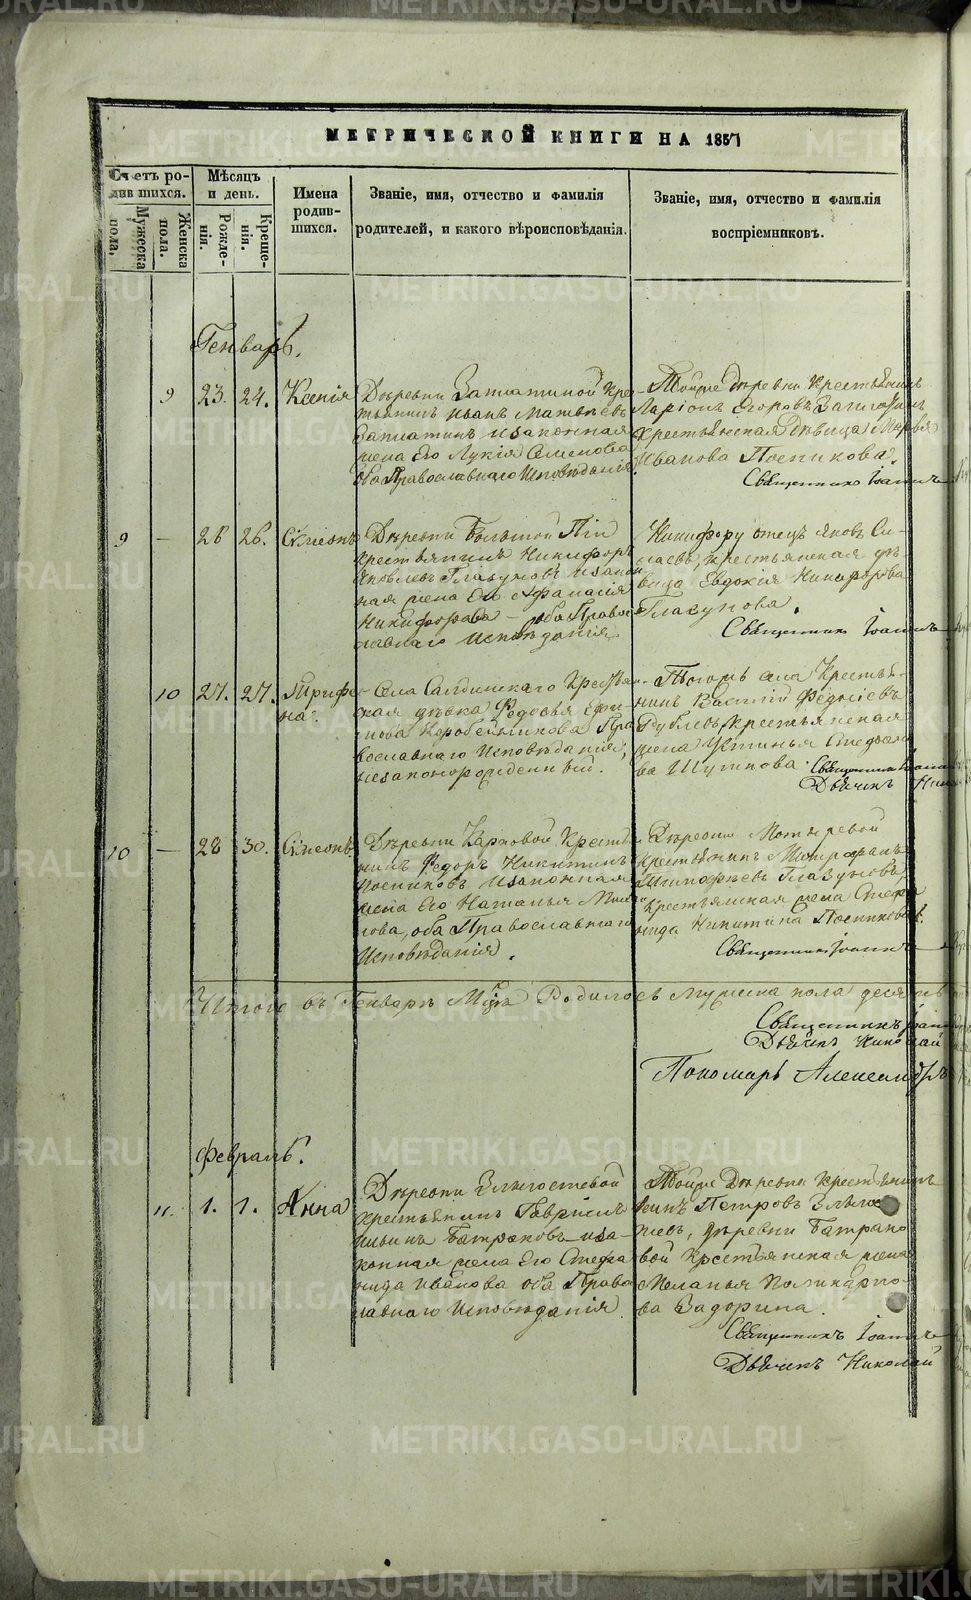 МЕТРИЧЕСКОЙ КНИГИ НА 1857
Счетъ родившихся.
Мужеска пола.
Женска пола.
Мѣсяцъ и день.
Рожденія.
Крещенія.
Имена родившихся.
Званіе, имя, отчество и фамилія
родителей, и какого вѣроисповѣданія.
Званіе, имя, отчество и фамилія
воспріемниковъ.
Генварь.
9 23. 24. Ксенія
Деревни Заплатиной Кре-
стьянинъ Иванъ Матвѣевъ
Заплатинъ и законная
жена Его Лукія Семенова
оба Православнаго Исповѣданія.
Тойже деревни крестьянинъ
Ларіонъ Егоровъ
крестьянская дѣвица Марья
Иванова Посникова.
Священникъ Іоаннъ
9 — 26 26. Симеонъ
Деревни Большой
крестьянинъ Никифоръ
Яковлевъ Глазуновъ и закон
ная жена Его Афанасія
Никифорова — оба Право
славнаго Исповѣданія
Никифору отецъ Яковъ Си-
лаевъ, крестьянская дѣ
вица Евдокія Никифорова
Глазунова.
Священникъ Іоаннъ
10 27. 27. Трифе
на.
Села Салдинскаго Крестьян-
ская дѣвка Федосья
Коробейникова Пра
вославнаго Исповѣданія,
незаконорожденный.
Тогожъ села Крестья-
нинъ Василій
Рублевъ, крестьянская
жена Устинья Стефано
ва Шутнова. Священникъ Іоаннъ
Дьячекъ
10 — 28 30. Симеонъ
Деревни Карповой Крестья
нинъ Федоръ Никитинъ
Посниковъ и законная
жена Его Наталья
оба Православнаго
Исповѣданія.
Деревни
крестьянинъ Митрофанъ
Глазуновъ,
крестьянская жена Стефа
нида Никитина Посникова.
Священникъ Іоаннъ
Итого въ Генварѣ Мцѣ Родилось мужеска пола десять
Священникъ Іоаннъ
Дьячекъ Николай
Пономарь Александръ
Февраль.
11. 1. 1. Анна
Деревни
крестьянинъ Гаврилъ
Ильинъ Батраковъ и за-
конная жена Его Стефа
нида Иванова оба Право
славнаго Исповѣданія
Тойже Деревни крестьянинъ
Петровъ
деревни Батрако
вой Крестьянская жена
Меланья Поликарпо-
ва Задорина.
Священникъ Іоаннъ
Дьячекъ Николай
METRIKI.GASO-URAL.RU